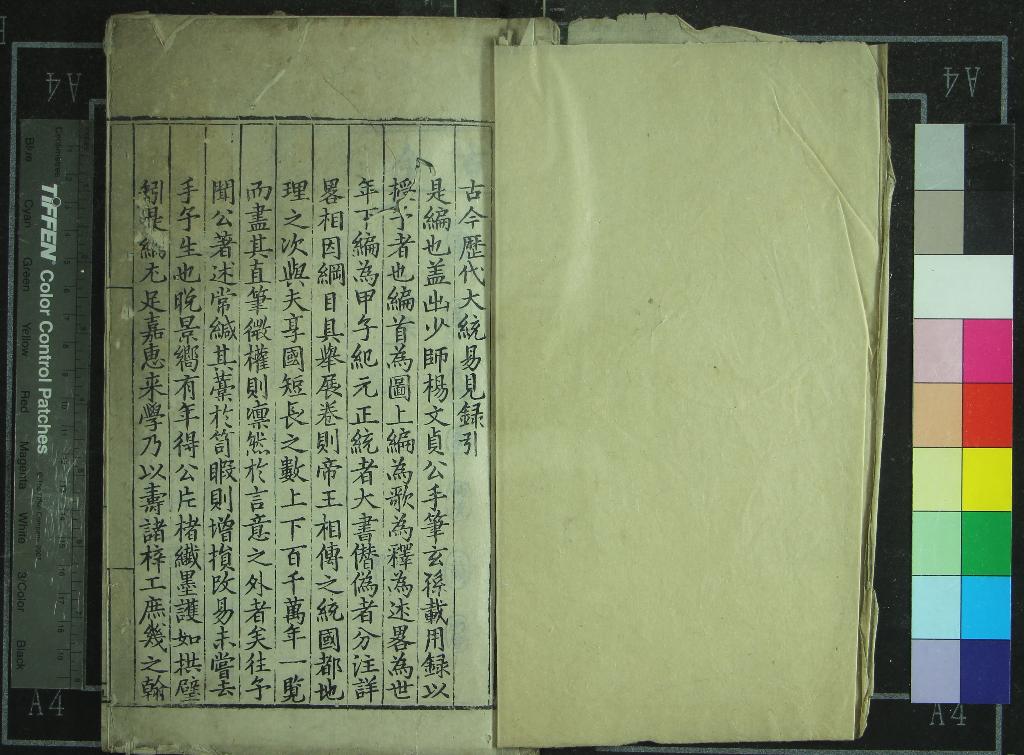 古今歷代大統易見録引
是編也盖出少師楊文貞公手筆玄孫載用録以
授予者也編首為圖上編為歌為釋為述畧為世
年下編為甲子紀元正統者大書僭偽者分注詳
畧相因綱目具舉展卷則帝王相傳之統國都地
理之次與夫享國短長之數上下百千萬年一覧
而盡其直筆微權則凛然於言意之外者矣往予
聞公著述常緘其藁於笥暇則增損改易未嘗去
手予生也晩景嚮有年得公片楮纎墨護如拱璧
矧是編尤足嘉惠来學乃以壽諸梓工庶幾之翰
A4
A4
A4
A4
TIFFEN Color Control Patches
Blue
Cyan
Green
Yellow
Red
Magenta
White
3/Color
Black